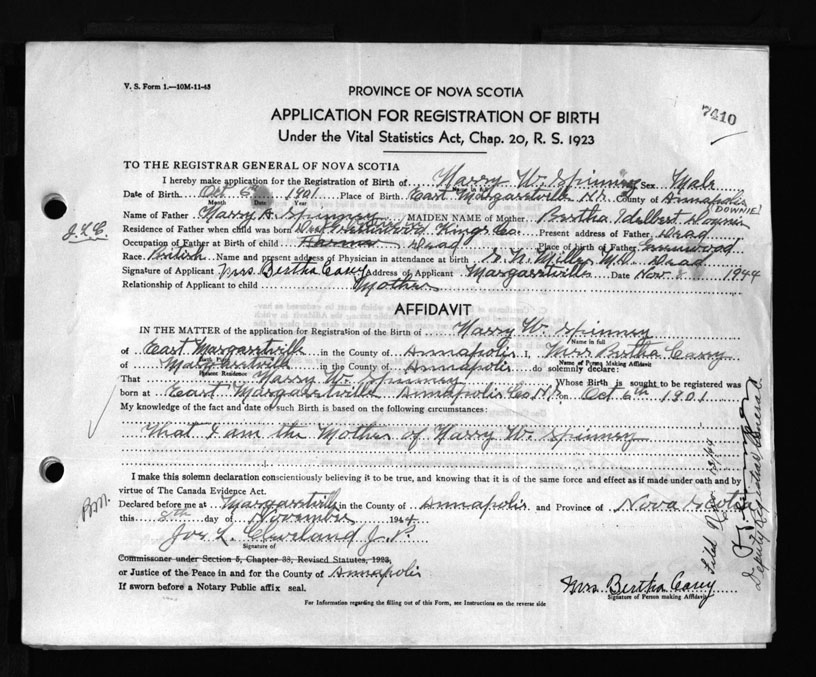 V. S. Form 1.—10M-11-43
PROVINCE OF NOVA SCOTIA
7410
APPLICATION FOR REGISTRATION OF BIRTH
Under the Vital Statistics Act, Chap. 20, R. S. 1923
TO THE REGISTRAR GENERAL OF NOVA SCOTIA
I hereby make application for the Registration of Birth of Harry W. Spinney Sex Male
Date of Birth Oct 6th 1901 Place of Birth East Margaretville N.S. County of Annapolis
Month Day Year
(DOWNIE)
Name of Father Harry A. Spinney MAIDEN NAME of Mother Bertha Idelbert Downie
Residence of Father when child was born Kings Co. Present address of Father Dead
Occupation of Father at Birth of child Farmer Dead Place of birth of Father Greenwood
Race British Name and present address of Physician in attendance at birth Miller M.D. Dead
Signature of Applicant Mrs. Bertha Casey Address of Applicant Margaretville Date Nov. 8 1944
Relationship of Applicant to child Mother
AFFIDAVIT
IN THE MATTER of the application for Registration of the Birth of Harry W. Spinney
Name in full
of East Margaretville in the County of Annapolis I, Mrs Bertha Casey
Birth Place Name of Person Making Affidavit
of Margaretville in the County of Annapolis do solemnly declare:
Present Residence
That Harry W. Spinney Whose Birth is sought to be registered was
born at East Margaretville Annapolis Co. N.S. on Oct 6th 1901
My knowledge of the fact and date of such Birth is based on the following circumstances:
That I am the Mother of Harry W. Spinney
I make this solemn declaration conscientiously believing it to be true, and knowing that it is of the same force and effect as if made under oath and by
virtue of The Canada Evidence Act.
Declared before me at Margaretville in the County of Annapolis and Province of Nova Scotia
this 8th day of November 1944
Jos L. Cleveland J.P.
Signature of
Commissioner under Section 5, Chapter 38, Revised Statutes, 1923,
or Justice of the Peace in and for the County of Annapolis
If sworn before a Notary Public affix seal.
Mrs Bertha Casey
Signature of Person making Affidavit
For Information regarding the filling out of this Form, see Instructions on the reverse side
Filed Nov 13/44
Deputy Registrar General